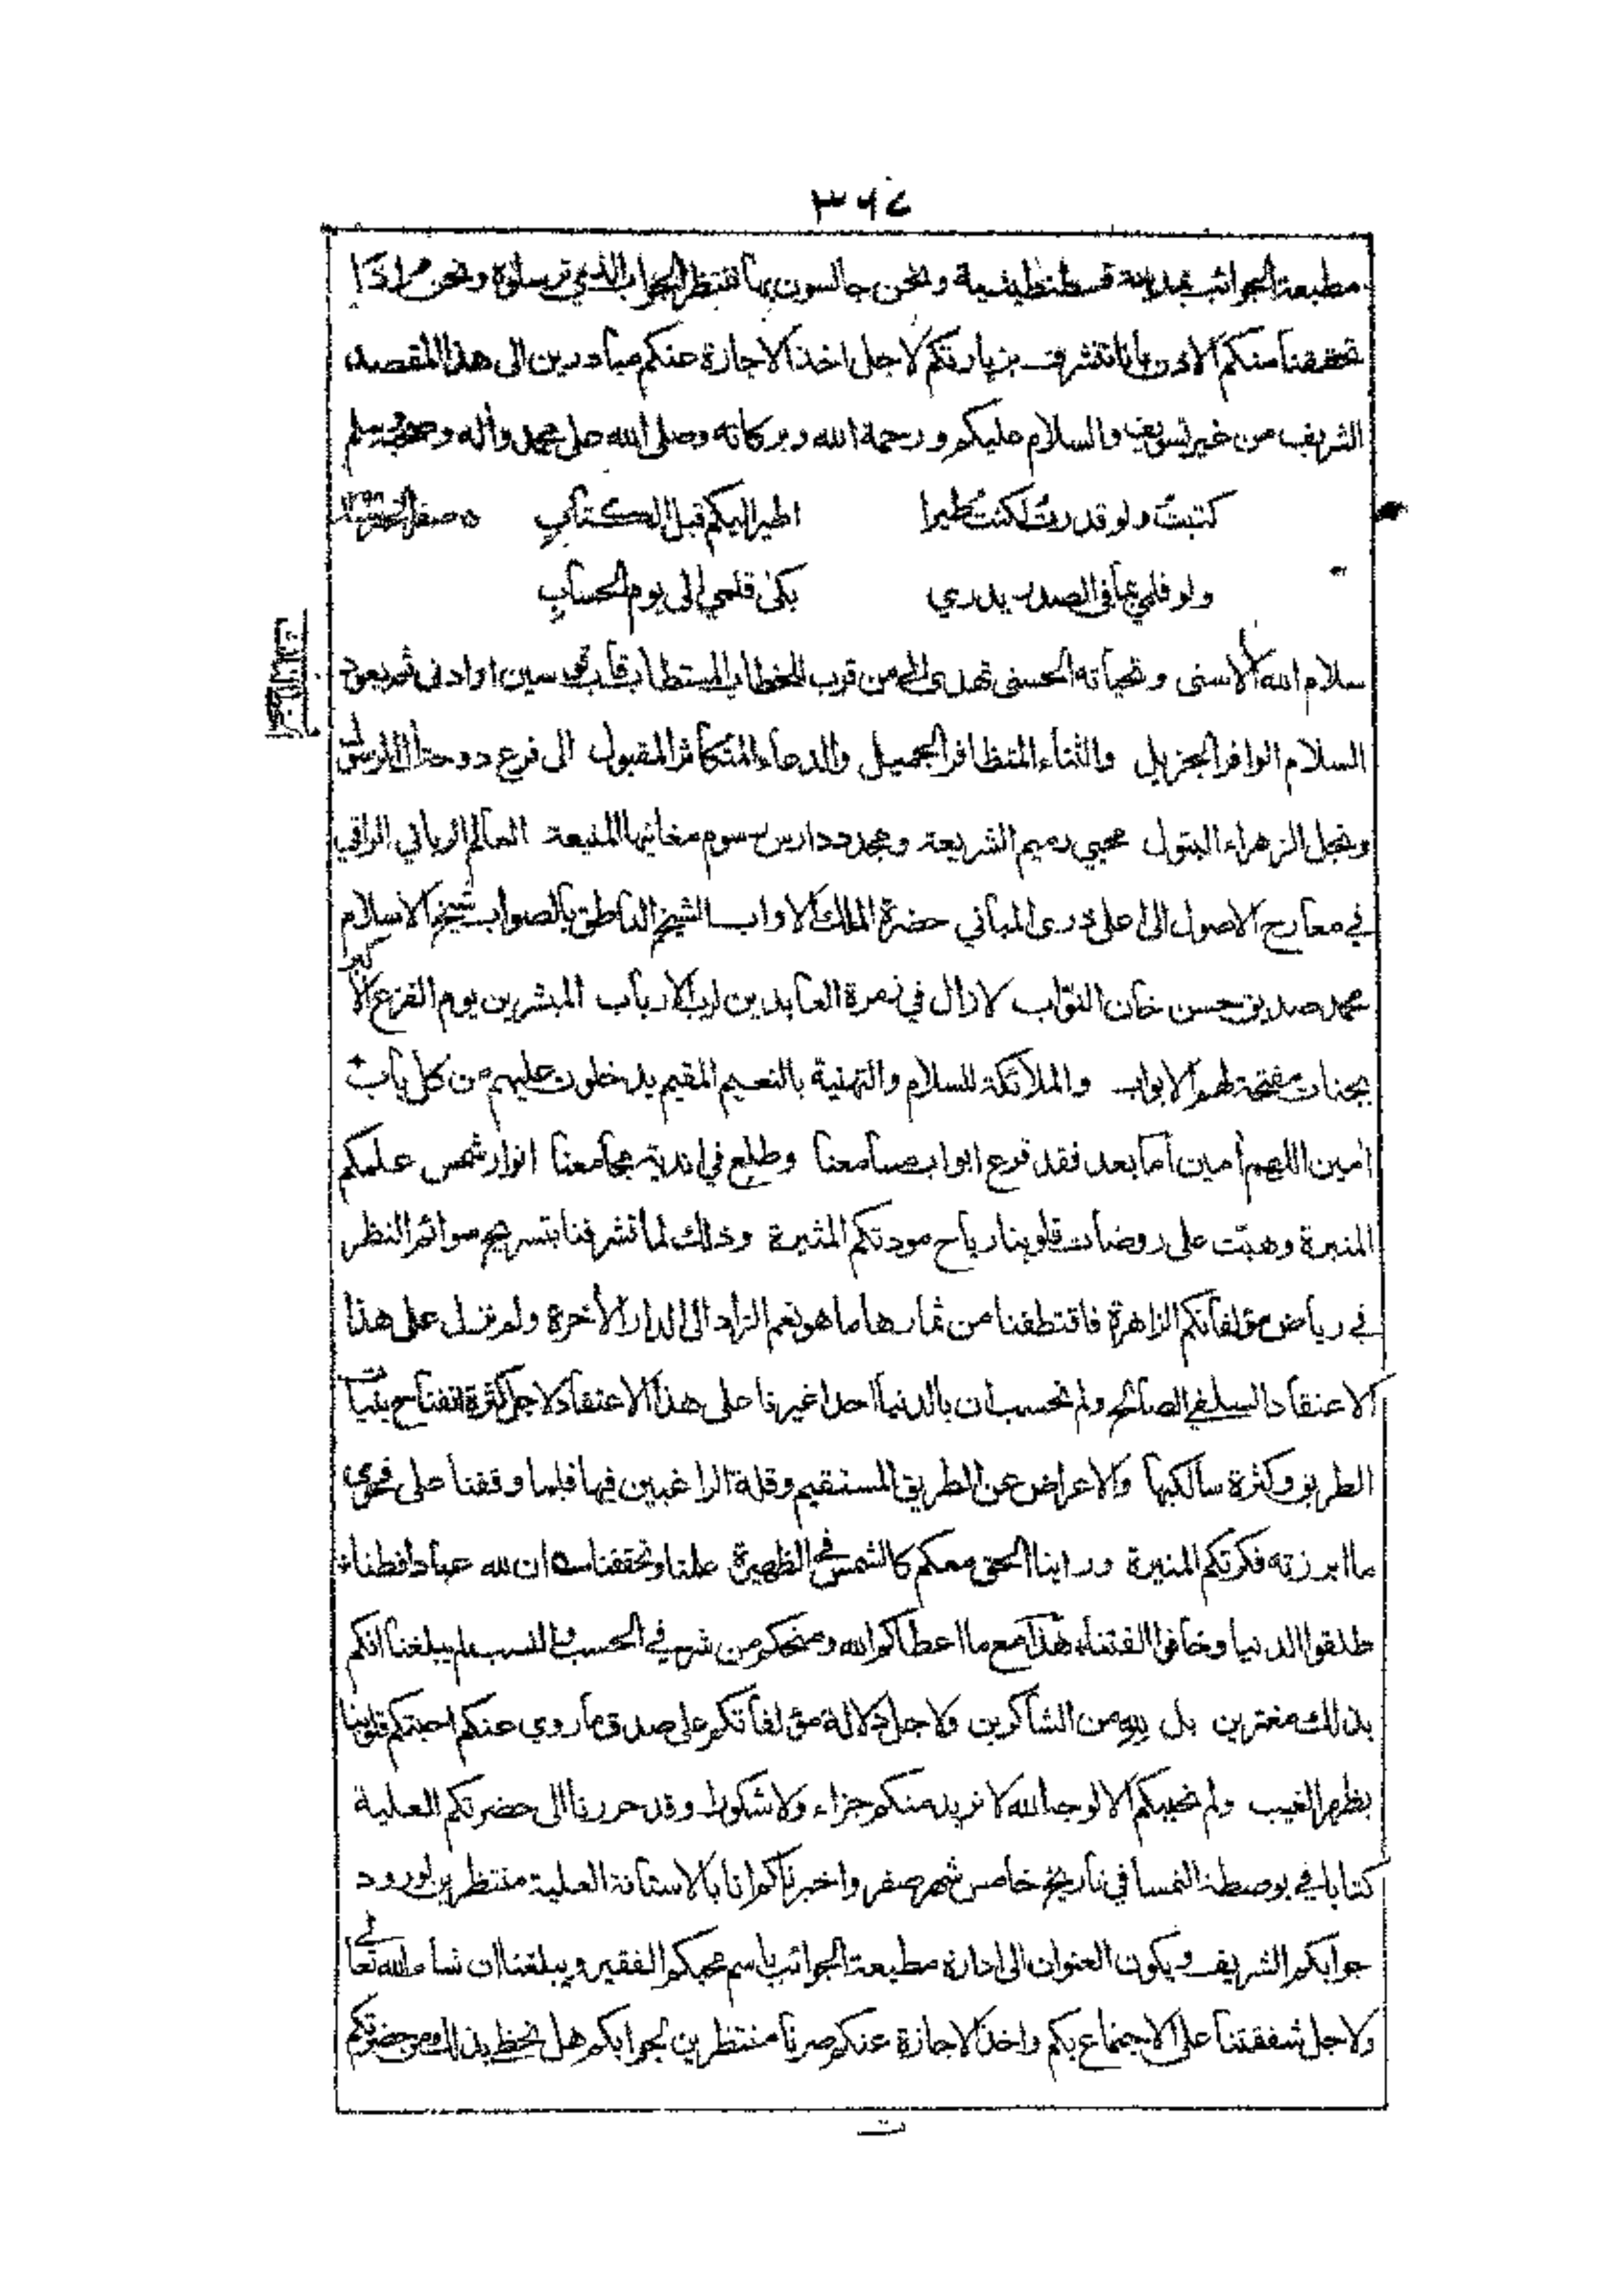 ٣٦٤
مطبعة الجوائب بمدينة قسطنطينية ونحن جالسون بها ننتظر الجواب الذي ترسلوه ونحن اذا
تحققنا منكم الاذن باناتشرف بزيارتكم لاجل اخذ الاجازة عنكم مبادرين الى هذا المقصد
الشريف من غير تسويف والسلام عليكم ورحمة الله وبركاته وصلى الله على محمد وآله وصحبه وسلم
كتبتُ ولو قدرتُ لكنتُ طيرا اطير اليكم قبل الكتابِ ٥ صفر
ولو قلمي بما في الصدر يدري بكى قلمي الى يوم الحسابِ
سلام الله الأسنى وتحياته الحسنى تهدى الى من قرب للخطاب المستطاب قاب قوسين او ادنى ثم يعود
السلام الوافر الجزيل والثناء المتظافر الجميل والدعاء المتكاثر المقبول الى فرع دوحة الرسول
ونجل الزهراء البتول محيي رميم الشريعة ومجدد دارس رسوم مغانيها المنيعة العالم الرباني الراقي
في معارج الاصول الى اعلى ذرى المباني حضرة الملك الاواب الشيخ الناطق بالصواب شيخ الاسلام
محمد صديق حسن خان النوّاب لا زال في زمرة العابدين لرب الارباب المبشرين يوم الفزع الأكبر
بجنات مفتحة لهم الابواب والملائكة للسلام والتهنية بالنعيم المقيم يدخلون عليهم من كل باب
امين اللهم أمين اما بعد فقد قرع ابواب مسامعنا وطلع في اندية مجامعنا انوار شمس علمكم
المنيرة وهبّت على روضات قلوبنا رياح مودتكم المثيرة وذلك لما تشرفنا بتسريح سوائم النظر
في رياض مؤلفاتكم الزاهرة فاقتطفنا من ثمارها ما هو نعم الزاد الى الدار الأخرة ولم نزل على هذا
الاعتقاد السلفي الصالح ولم نحسب ان بالدنيا احدا غيرنا على هذا الاعتقاد لاجل كثرة انفتاح بنيات
الطريق وكثرة سالكيها والاعراض عن الطريق المستقيم وقلة الراغبين فيها فلما وقفنا على فحوى
ما ابرزته فكرتكم المنيرة ورأينا الحق معكم كالشمس في الظهيرة علمنا وتحققنا ان لله عبادا فطناء
طلقوا الدنيا وخافوا الفتناء هذا مع ما اعطاكم الله ومنحكم من شرف الحسب والنسب لم يبلغنا انكم
بذلك مغترين بل لله من الشاكرين ولاجل دلالة مؤلفاتكم على صدق ما روي عنكم احبتكم قلوبنا
بظهر الغيب ولم نحببكم الا لوجه الله لا نريد منكم جزاء ولا شكورا وقد حررنا الى حضرتكم العلية
كتابا في بوصطة النمسا في تاريخ خامس شهر صفر واخبرناكم انا بالاستانة العلية منتظرين لورود
جوابكم الشريف ويكون العنوان الى ادارة مطبعة الجوائب باسم محبكم الفقير ويبلغنا ان شاء الله تعالى
ولاجل شفقتنا على الاجتماع بكم واخذ الاجازة عنكم صرنا منتظرين لجوابكم هل نحظى بذلك من حضرتكم